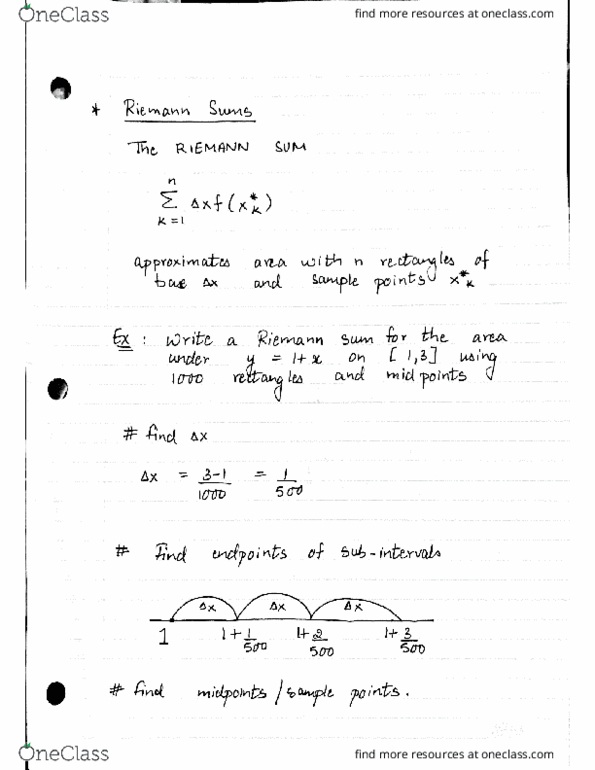 OneClass find more resources at oneclass.com
* Riemann Sums
The RIEMANN SUM
n
Σ Δx f(x*k)
k=1
approximates area with n rectangles of
base Δx and sample points x*k
Ex : Write a Riemann sum for the area
under y = 1+x on [1,3] using
1000 rectangles and midpoints
# find Δx
Δx = 3-1/1000 = 1/500
# Find endpoints of sub-intervals
Δx Δx Δx
1 1+1/500 1+2/500 1+3/500
# find midpoints/sample points.
OneClass find more resources at oneclass.com